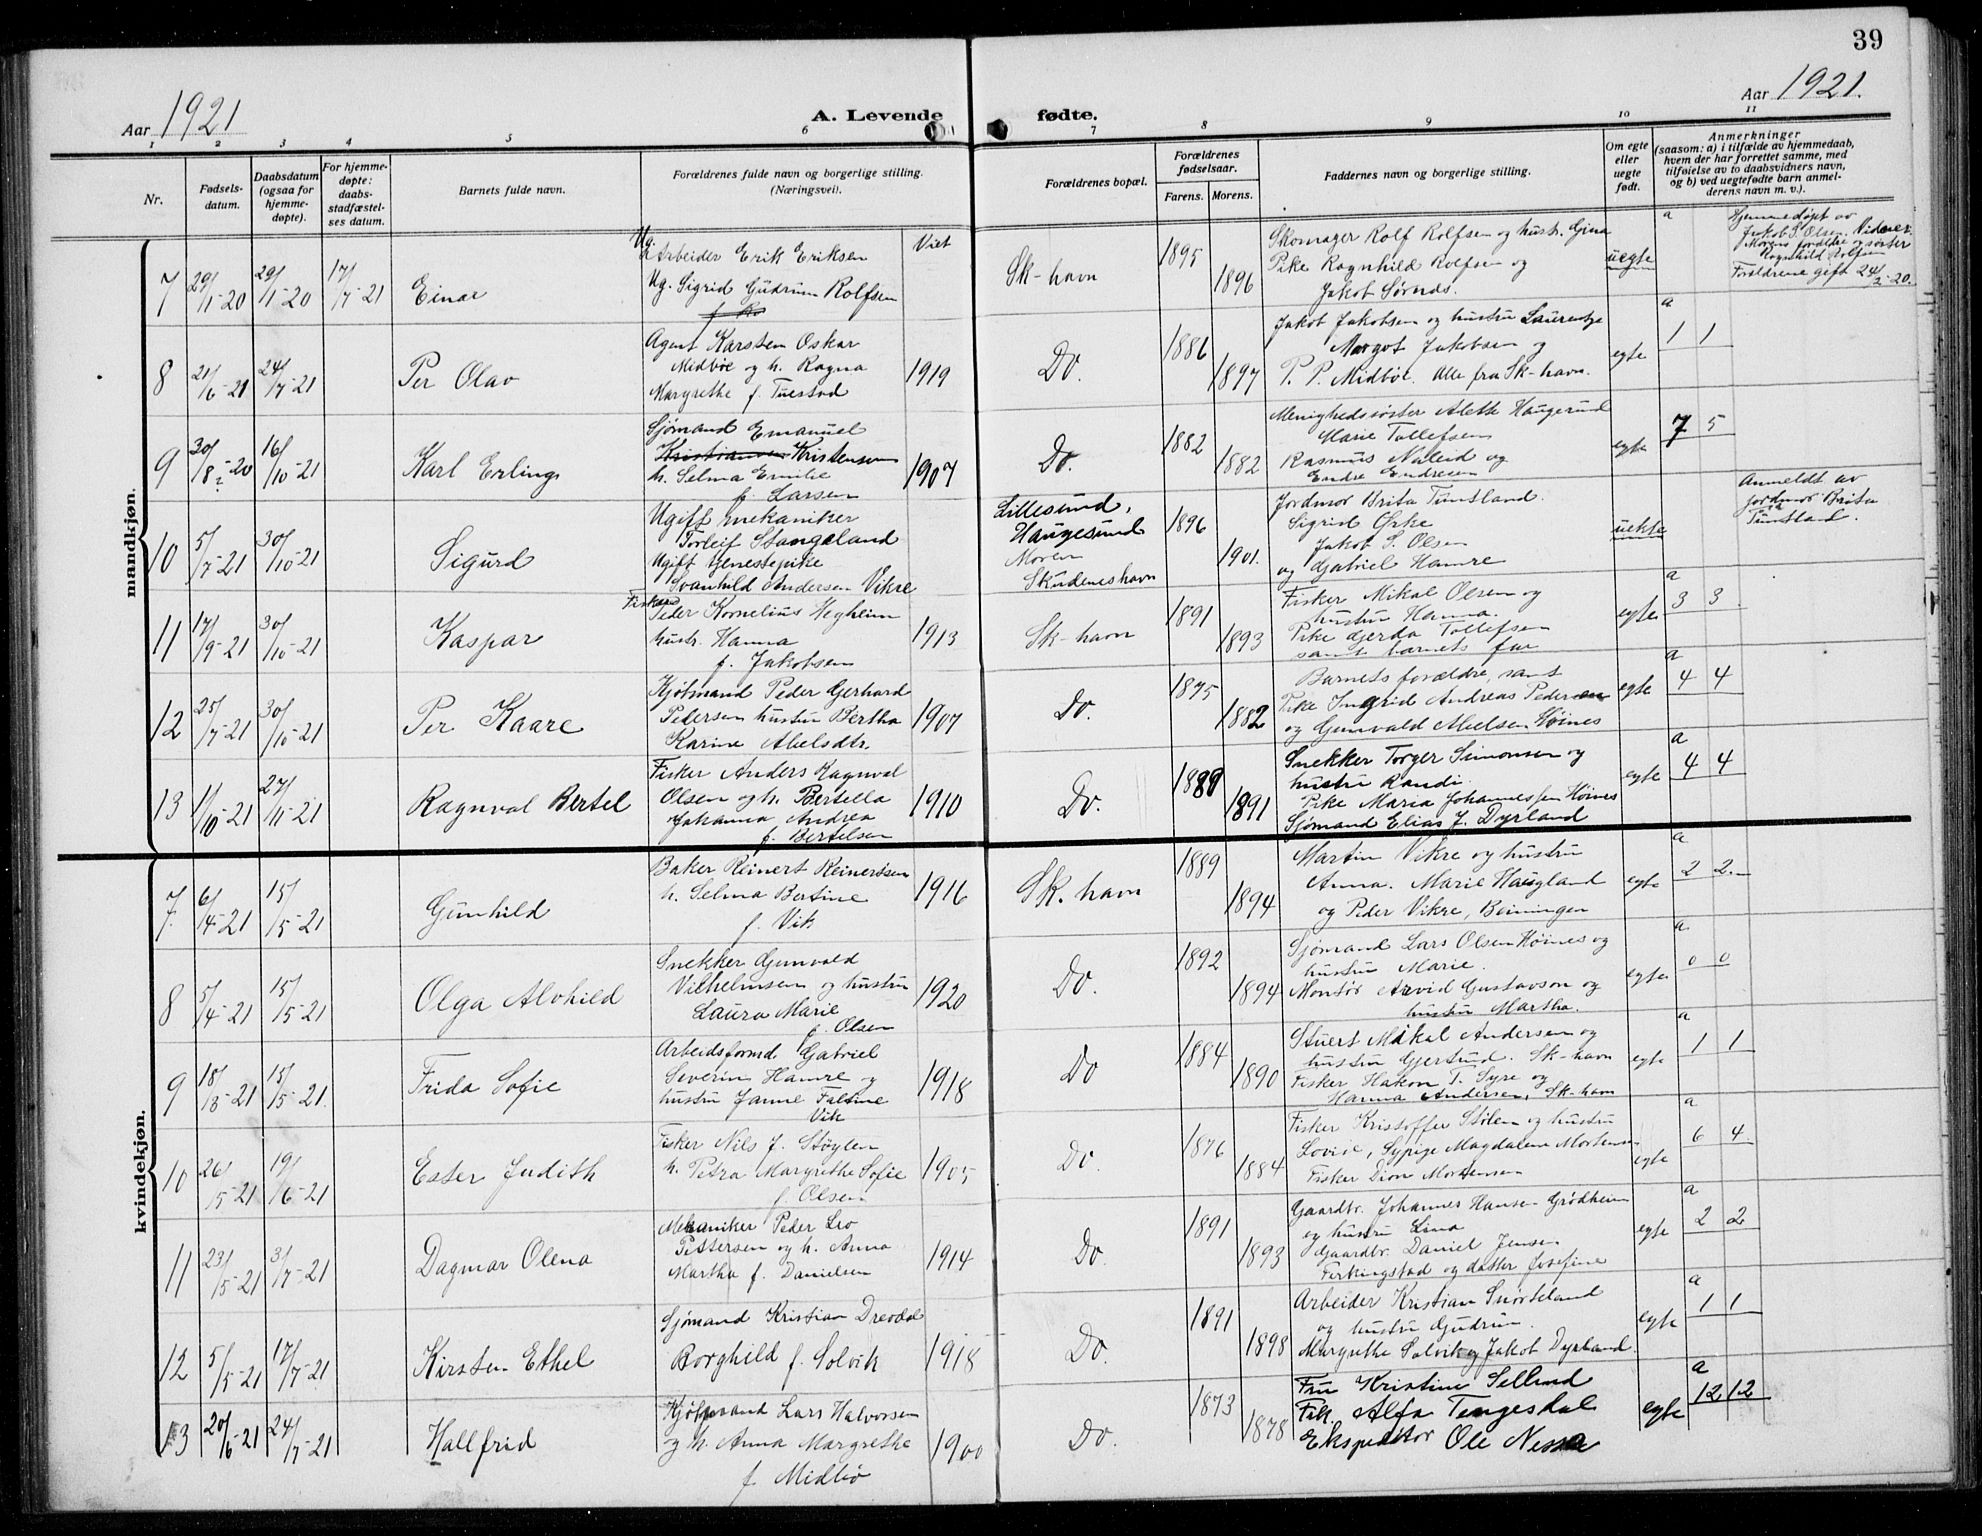 39
Aar 1921
A. Levende fødte.
Aar 1921.
1 2 3 4 5 6 7 8 9 10 11
Nr.
Fødsels-
datum.
Daabsdatum
(ogsaa for
hjemme-
døpte).
For hjemme-
døpte:
daabs
stadfæstel-
ses datum.
Barnets fulde navn.
Forældrenes fulde navn og borgerlige stilling.
(Næringsvei).
Forældrenes bopæl.
Forældrenes
fødselsaar.
Farens. Morens.
Faddernes navn og borgerlige stilling.
Om egte
eller
uegte
født.
Anmerkninger
(saasom: a) i tilfælde av hjemmedaab,
hvem der har forrettet samme, med
tilføielse av to daabsvidners navn,
og b) ved uegtefødte barn anmel-
derens navn m. v.).
mandkjøn.
Viet
7 29/1-20 29/1-20 17/7-21 Einar
Ug. Arbeider Erik Eriksen
Ug. Sigrid Gudrun Rolfsen
Sk-havn 1895 1896
Skomager Rolf Rolfsen og hustr. Gina
Pike Ragnhild Rolfsen og
Jakob Sørnds.
uegte
a
Hjemmedøpt av
Jakob S. Olsen. Vidner:
Morens forældre og søster
Ragnhild Rolfsen
Forældrene gift 24/2-20.
8 21/6-21 24/7-21 Per Olav
Agent Karsten Oskar
Midbøe og h. Ragna
Margrethe f. Tuestad
1919 Do. 1886 1897
Jakob Jakobsen og hustru Laurentze
Margot Jakobsen og
P. P. Midbøe. Alle fra Sk-havn.
egte
a
1 1
9 30/8-20 16/10-21 Karl Erling
Sjømand Emanuel
Kristiansen Kristensen
h. Selma Emilie
f. Larsen
1907 Do. 1882 1882
Menighedssøster Alette Haugerud
Marie Tollefsen
Rasmus Naleid og
Endre Endresen
egte
7 5
10 5/7-21 30/10-21 Sigurd
Ugift mekaniker
Torleif Stangeland
Ugift tjenestepike
Svanhild Andersen Vikre
Lillesund,
Haugesund
Moren
Skudeneshavn
1896 1901.
Jordmor Brita Tuntland.
Sigrid Ørke
Jakob S. Olsen
og Gabriel Hamre
uekte
Anmeldt av
jordmor Brita
Tuntland.
11 17/9-21 30/10-21 Kaspar
Fisker
Peder Kornelius Vegheim
hustr. Hanna
f. Jakobsen
1913 Sk-havn 1891 1893
Fisker Mikal Olsen og
hustru Hanna.
Pike Gjerda Tollefsen
samt barnets far
egte
a
3 3
12 25/7-21 30/10-21 Per Kaare
Kjøbmand Peder Gerhard
Pedersen hustru Bertha
Karine Abelsdtr.
1907 Do. 1875 1882
Barnets forældre, samt
Pike Ingrid Andreas Pedersen
og Gunvald Abelsen Høines
egte
a
4 4
13 1/10-21 27/11-21 Ragnval Bertel
Fisker Anders Ragnval
Olsen og h. Bertella
Johanna Andrea
f. Bertelsen
1910 Do. 1889 1891
Snekker Torger Simonsen og
hustru Randi.
Pike Maria Johannessen Høines
Sjømand Elias J. Dyrland
egte
a
4 4
kvindekjøn.
7. 6/4-21 15/5-21 Gunhild
Baker Reinert Reinertsen
h. Selma Bertine
f. Vik
1916 Sk. havn 1889 1894
Martin Vikre og hustru
Anna. Marie Haugland
og Peder Vikre, Beiningen
egte
a
2 2.
8 5/4-21 15/5-21 Olga Alvhild
Snekker Gunvald
Vilhelmsen og hustru
Laura Marie
f. Olsen
1920 Do. 1892 1894
Sjømand Lars Olsen Høines og
hustru Marie.
Montør Arvid Gustavson og
hustru Martha.
egte
a
0 0
9 18/3-21 15/5-21. Frida Sofie
Arbeidsformd Gabriel
Severin Hamre og
hustru Janne Faltine
Vik
1918 Do 1884 1890
Stuert Mikal Andersen og
hustru Gjertrud. Sk-havn
Fisker Hakon T. Syre og
Hanna Andersen, Sk-havn
egte
a
1 1
10 26/5-21 19/6-21 Ester Judith
Fisker Nils J. Støylen
h. Petra Margrethe Sofie
f. Olsen
1905 Do. 1876 1884
Fisker Kristoffer Stølen og hustru
Lovise, Sypige Magdalene Mortensen
Fisker Dion Mortensen
egte
a
6 4.
11 23/5-21 3/7-21 Dagmar Olena
Mekaniker Peder Leo
Pettersen og h. Anna
Martha f. Danielsen
1914 Do. 1891 1893
Gaardbr. Johannes Hansen Grødheim
og hustru Lina
Gaardbr. Daniel Jensen
Ferkingstad og datter Josefine
egte
a
2 2
12 5/5-21 17/7-21 Kirsten Ethel
Sjømand Kristian Drevdal
Borghild f. Solvik
1918 Do. 1891 1898
Arbeider Kristian Snørteland
og hustru Gudrun.
Margrethe Solvik og Jakob Dyrland.
egte
a
1 1
13 20/6-21 24/7-21 Hallfrid
Kjøbmand Lars Halvorsen
og h. Anna Margrethe
f. Midbø
1900 Do. 1873 1878
Fru Kristine Sellend
Frk. Alfa Tengesdal
Ekspeditør Ole Nessa
egte
a
12 12